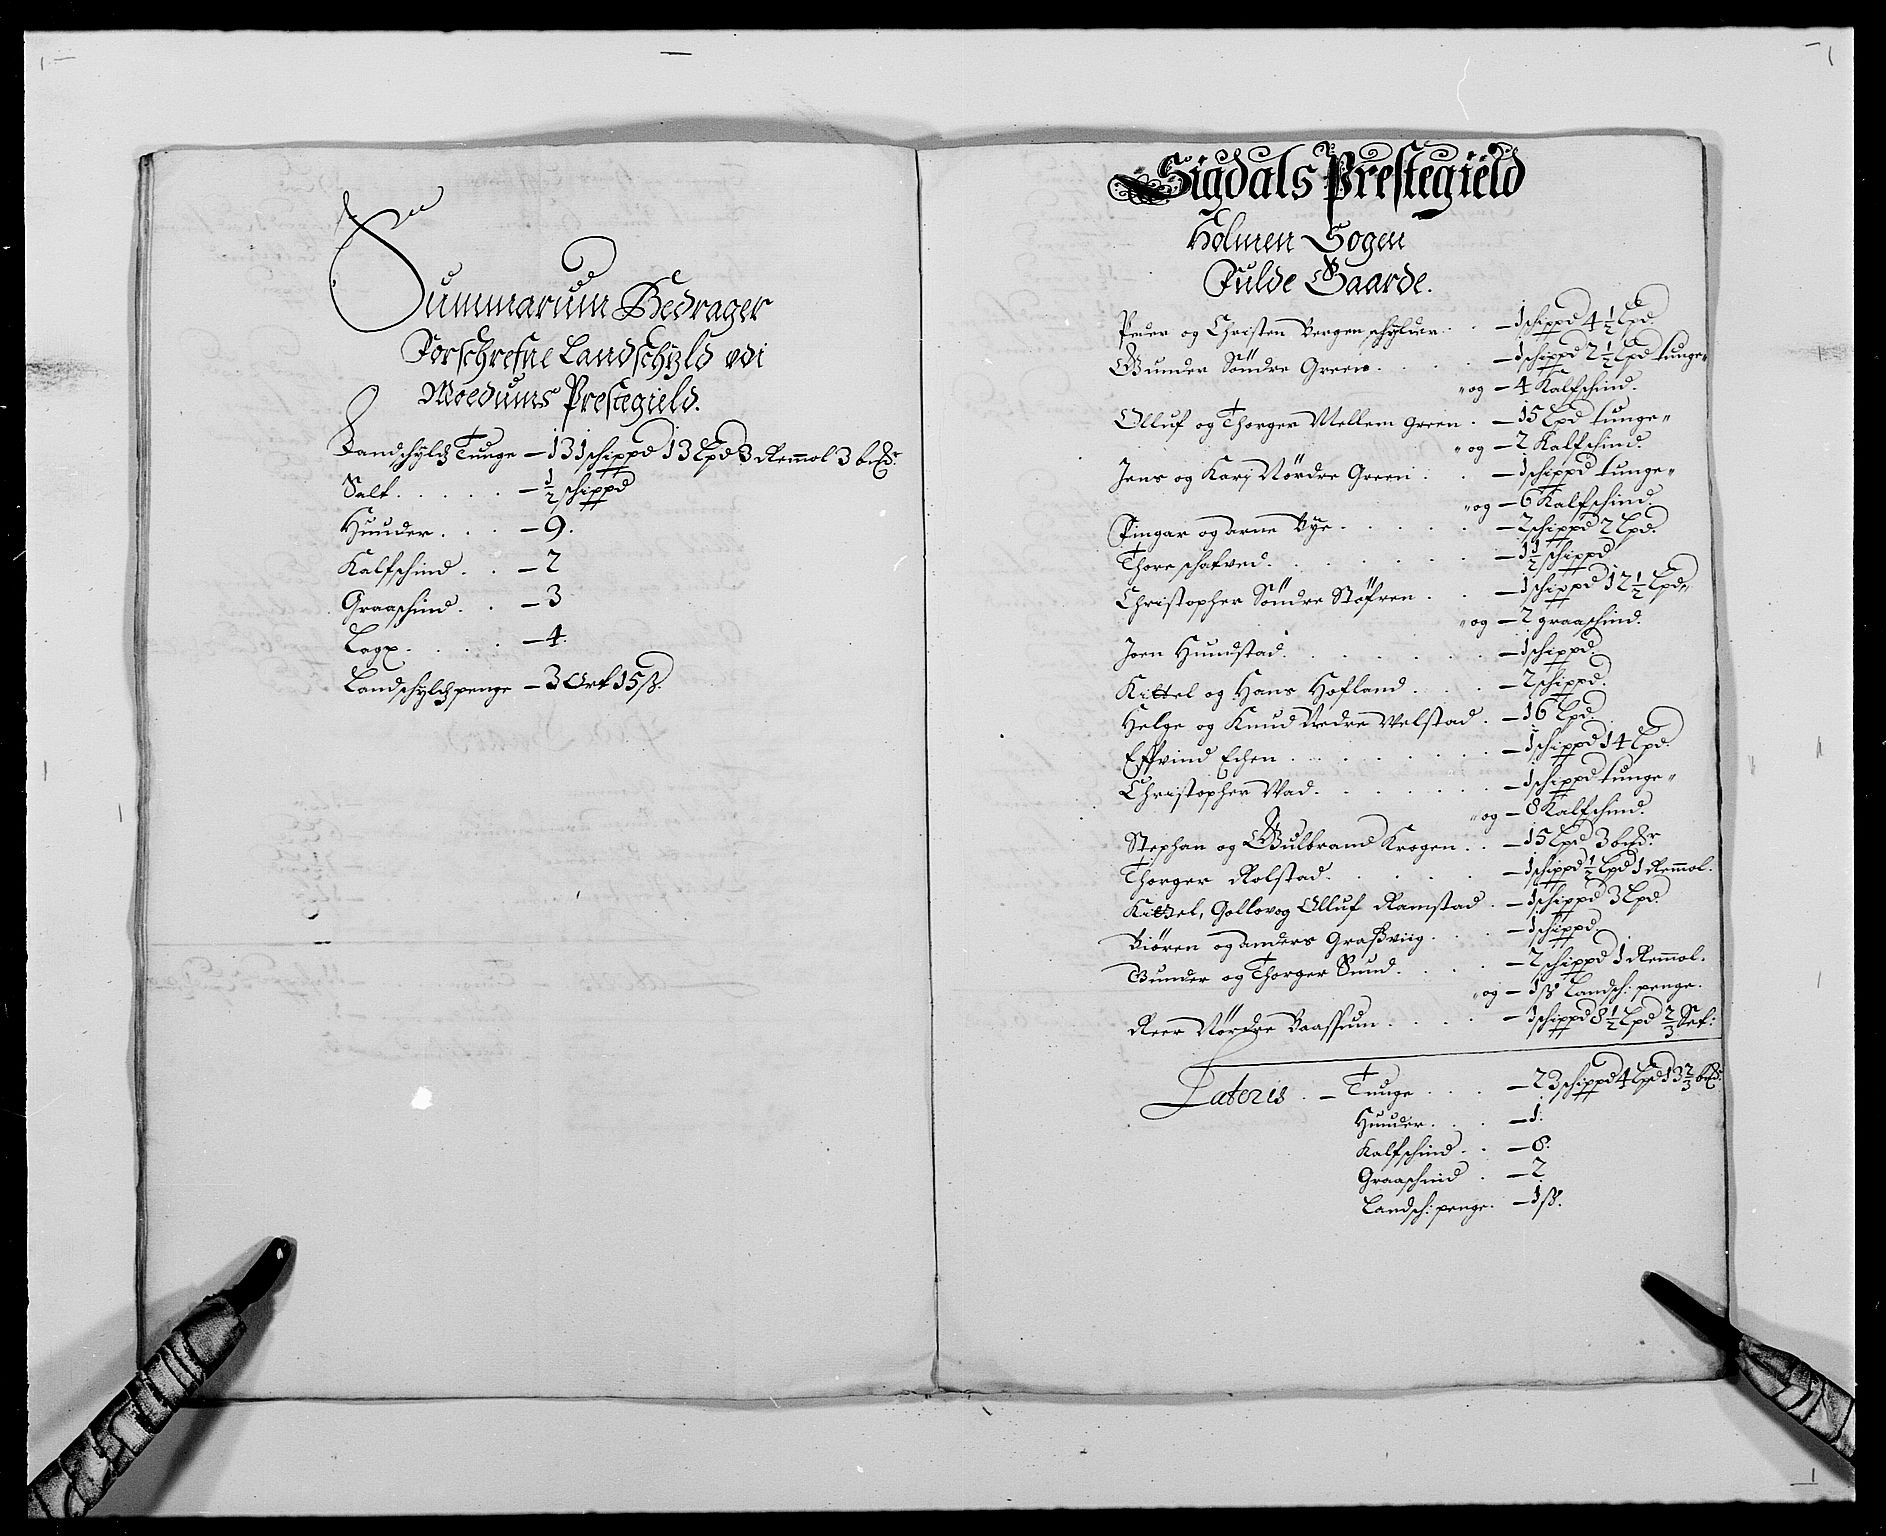 Summarum Bedrager
Forschrefne Landschyld udi
Moedums Prestegield.
Landschyld Tunge – 131 schippd 13 Lpd 3 Remol 3 bcd:
Salt . . . . . – ½ schippd
Huuder . . . – 9.
Kalfschind . . – 2
Graaschind . . – 3
Lagx . . . . . – 4.
Landschyldpenge – 3 Ort 15 ß.
Sigdals Prestegield
Holmen Sogen
Fulde Gaarde.
Peder og Christen Bergen schyluer . . – 1 schippd 4½ Lpd
Gunder Söndre Green . . . . – 1 schippd 2½ Lpd tunge„
„og – 4 Kalfschind.
Olluf og Thorger Mellem Green . – 15 Lpd tunge„
„og – 2 Kalfschind.
Jens og Kari Nördre Green . . – 1 schippd tunge„
„og – 6 Kalfschind.
Fingar og Arne Bye . . . . . – 2 schippd 2 Lpd.
Thore schatved . . . . . . – 1½ schippd
Christopher Söndre Stöfren . . – 1 schippd 12½ Lpd„
„og – 2 graaschind.
Joen Hundstad . . . . . . – 1 schippd.
Kittel og Hans Hofland . . . – 2 schippd.
Helge og Knud Nedre Velstad . – 16 Lpd.
Effvind Echen . . . . . . – 1 schippd 14 Lpd.
Christopher Vad . . . . . . – 1 schippd tunge„
„og – 8 Kalfschind.
Stephan og Gulbrand Krogen . . – 15 Lpd 3 bcd:
Thorger Rolstad . . . . . – 1 schippd ½ Lpd 1 Remol.
Kittel, Gollov og Olluf Ramstad . – 1 schippd 3 Lpd.
Biören og Anders Graßviig . . . – 1 schippd.
Gunder og Thorger Sund . . . . – 2 schippd 1 Remol.
„og – 1 ß Landsch: penge.
Reer Nördre Baassum . . . . – 1 schippd 8½ Lpd ⅔ Set:
Lateris . – Tunge . . . – 23 schippd 4 Lpd 13⅔ bcd:
Huuder . . . – 1.
Kalfschind . . – 8.
Graaschind . – 2
Landsch: penge . – 1 ß.